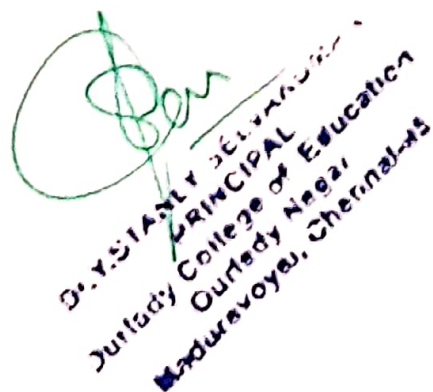 Dr.Y.STANLY
PRINCIPAL
Ourlady College of Education
Ourlady Nagar
Maduravoyal, Chennai-95